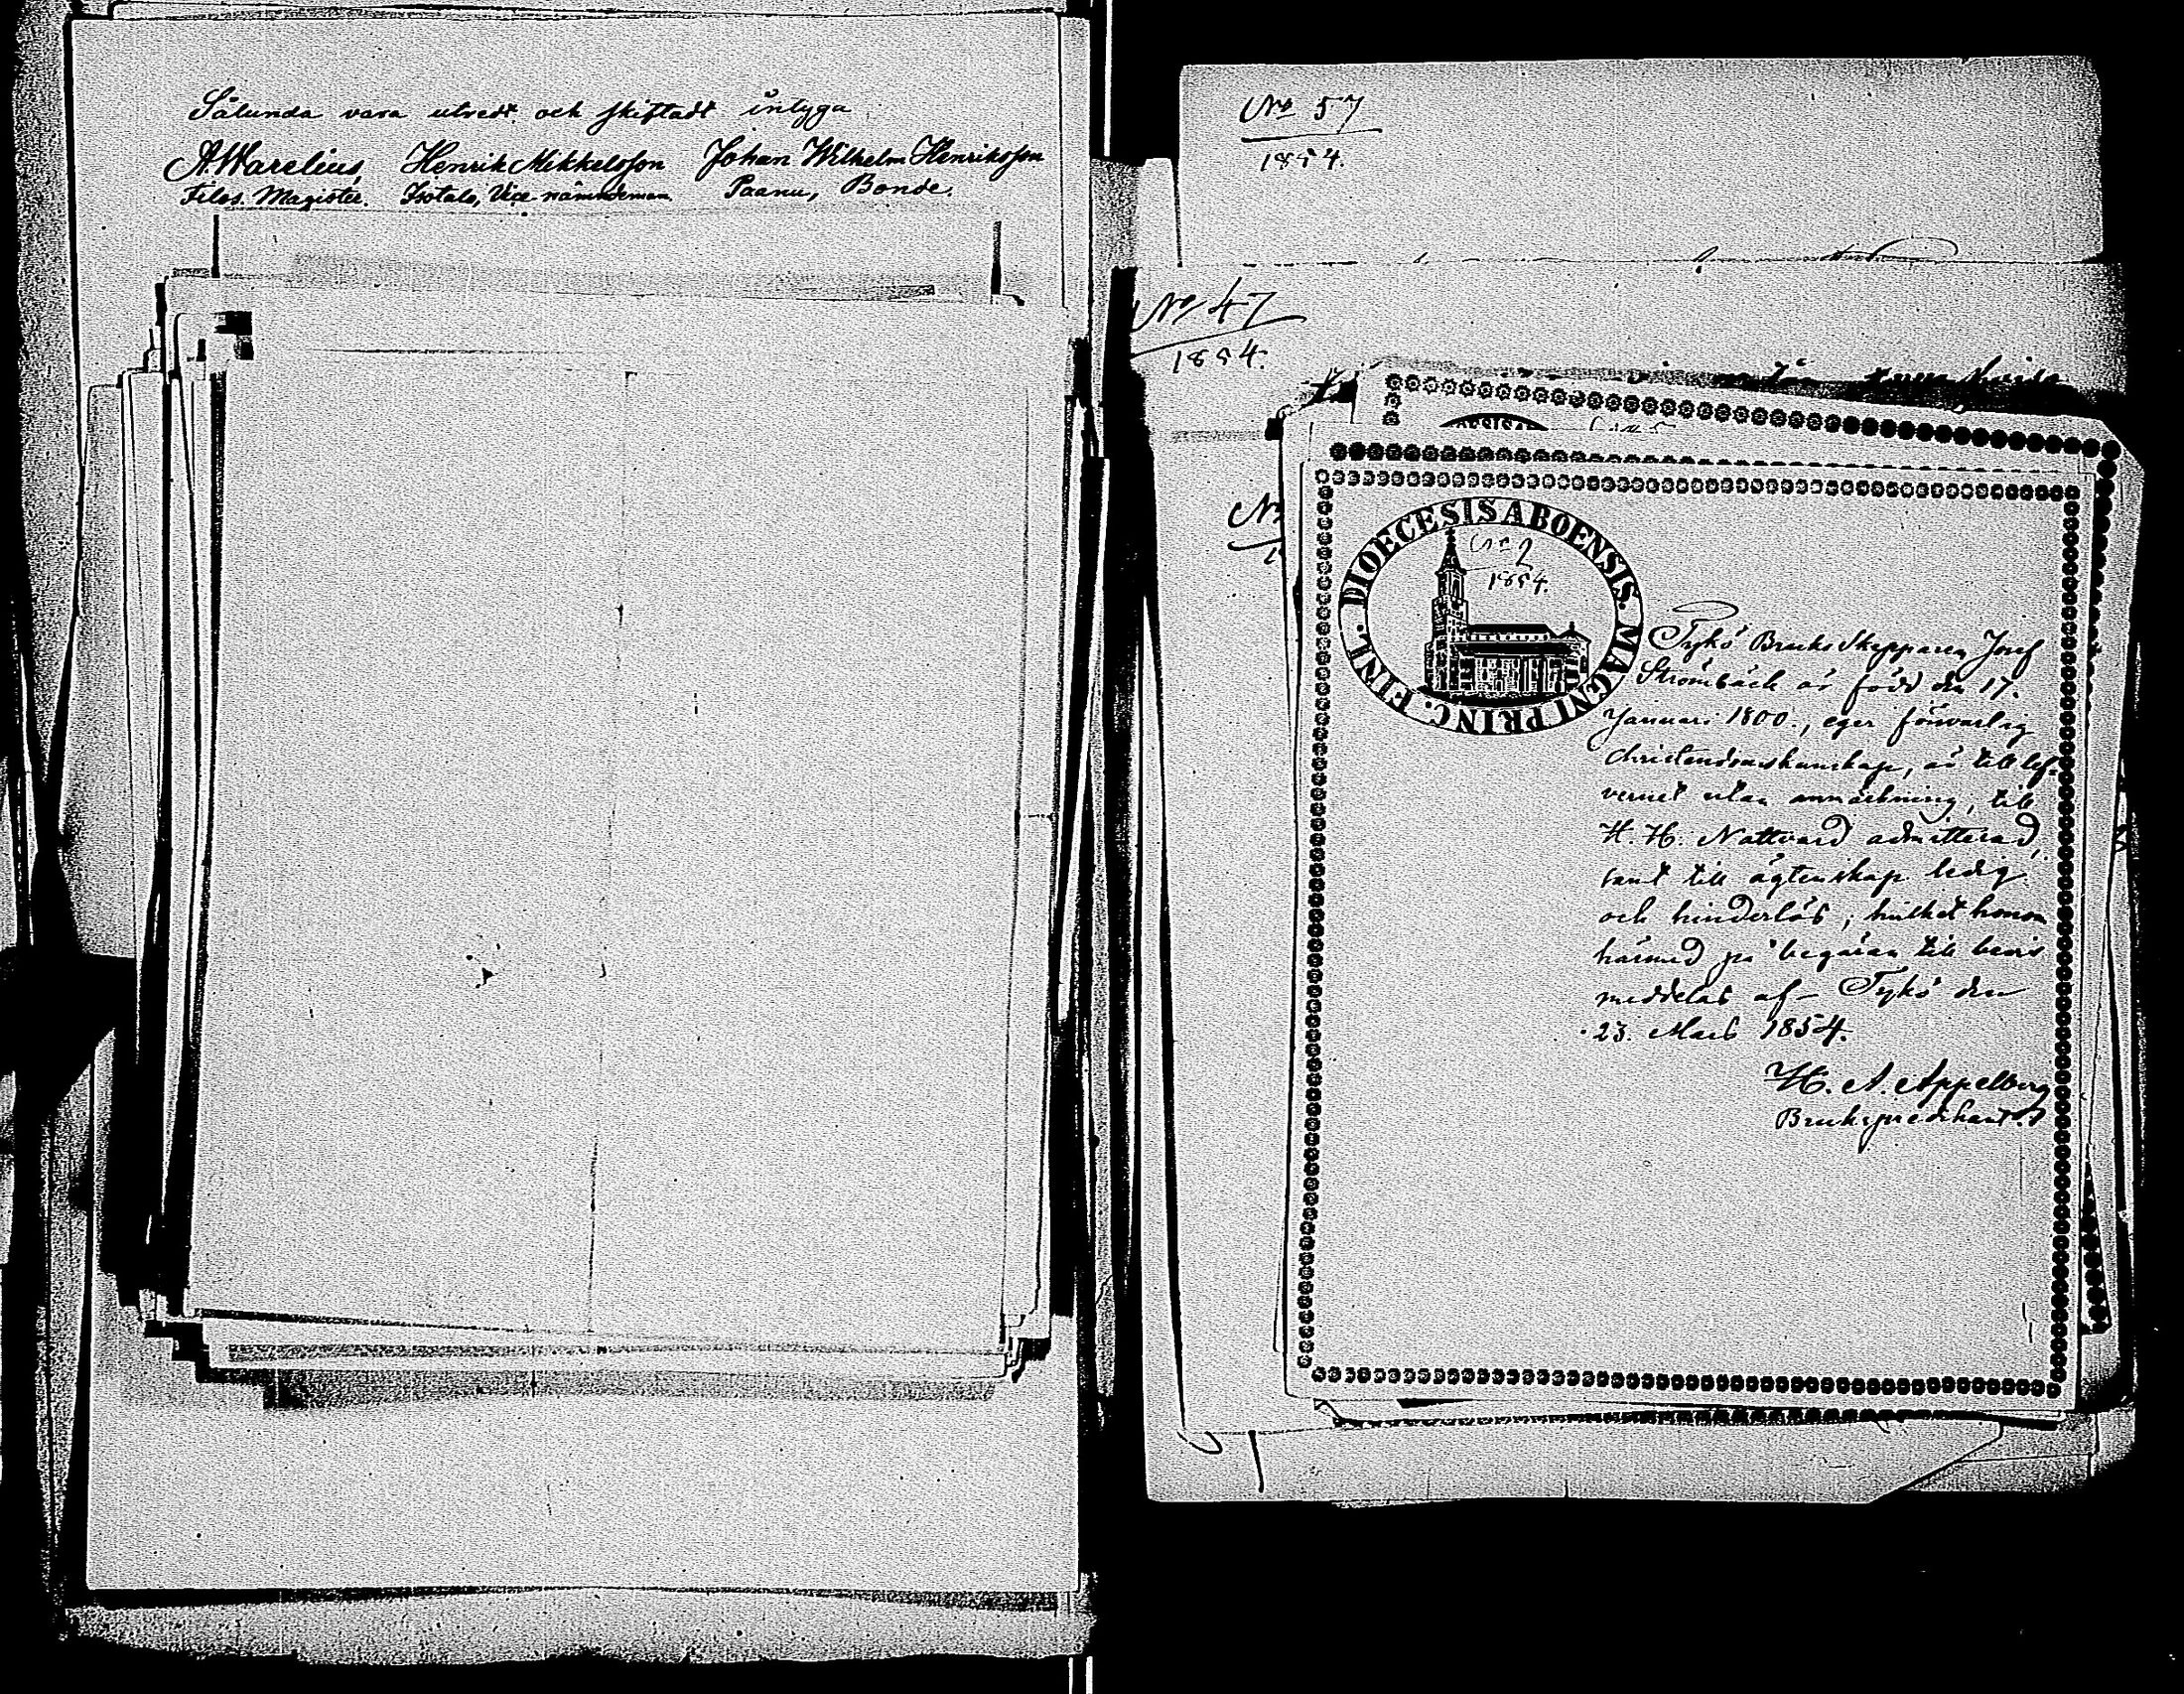 Sålunda vara utredt och skiftadt intyga
A. Warelius, Henrik Mikkelsson Johan Wilhelm Henriksson
Filos. Magister. Isotalo, Vice-nämndeman Paanu, Bonde.
No 57
1854.
No 47
1854.
DIOECESIS ABOENSIS. MAGNI PRINC. FINL.
No 2
1854.
Tykö Bruks Skepparen Josef
Strömbäck är född den 17.
Januari 1800., eger förswarlig
christendomskunskap, är till lef-
vernet utan anmärkning, till
H. H. Nattvard admitterad,
samt till ägtenskap ledig
och hinderlös; hvilket honom
härmed på begäran till bevis
meddelas af – Tykö den
23. Mars 1854.
H. A. Appelberg
Brukspredikant.